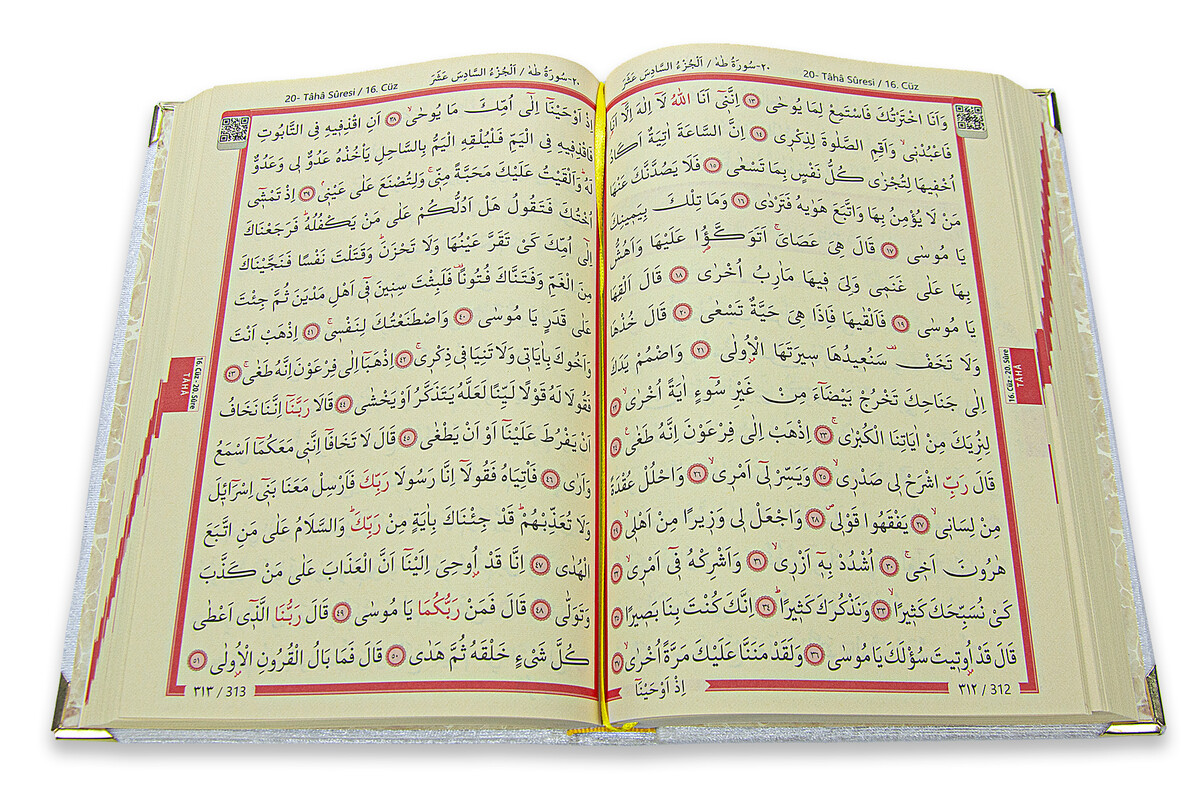 ٢٠-سُورَةُ طٰهٰ / اَلْجُزْءُ السَّادِسَ عَشَرَ
20- Tâhâ Sûresi / 16. Cüz
وَاَنَا اخْتَرْتُكَ فَاسْتَمِعْ لِمَا يُوحٰى ١٣ اِنَّنٖٓي اَنَا اللّٰهُ لَٓا اِلٰهَ اِلَّٓا اَنَا
فَاعْبُدْنٖيۙ وَاَقِمِ الصَّلٰوةَ لِذِكْرٖي ١٤ اِنَّ السَّاعَةَ اٰتِيَةٌ اَكَادُ
اُخْفٖيهَا لِتُجْزٰى كُلُّ نَفْسٍ بِمَا تَسْعٰى ١٥ فَلَا يَصُدَّنَّكَ عَنْهَا
مَنْ لَا يُؤْمِنُ بِهَا وَاتَّبَعَ هَوٰيهُ فَتَرْدٰى ١٦ وَمَا تِلْكَ بِيَمٖينِكَ
يَا مُوسٰى ١٧ قَالَ هِيَ عَصَايَۚ اَتَوَكَّـؤُ۬ا عَلَيْهَا وَاَهُشُّ
بِهَا عَلٰى غَنَمٖي وَلِيَ فٖيهَا مَاٰرِبُ اُخْرٰى ١٨ قَالَ اَلْقِهَا
يَا مُوسٰى ١٩ فَاَلْقٰيهَا فَاِذَا هِيَ حَيَّةٌ تَسْعٰى ٢٠ قَالَ خُذْهَا
وَلَا تَخَفْ۠ سَنُعٖيدُهَا سٖيرَتَهَا الْاُو۫لٰى ٢١ وَاضْمُمْ يَدَكَ
اِلٰى جَنَاحِكَ تَخْرُجْ بَيْضَٓاءَ مِنْ غَيْرِ سُٓوءٍ اٰيَةً اُخْرٰىۙ ٢٢
لِنُرِيَكَ مِنْ اٰيَاتِنَا الْكُبْرٰىۚ ٢٣ اِذْهَبْ اِلٰى فِرْعَوْنَ اِنَّهُ طَغٰى۟ ٢٤
قَالَ رَبِّ اشْرَحْ لٖي صَدْرٖيۙ ٢٥ وَيَسِّرْ لٖٓي اَمْرٖيۙ ٢٦ وَاحْلُلْ عُقْدَةً
مِنْ لِسَانٖيۙ ٢٧ يَفْقَهُوا قَوْلٖيۖ ٢٨ وَاجْعَلْ لٖي وَزٖيرًا مِنْ اَهْلٖيۙ ٢٩
هٰرُونَ اَخٖيۚ ٣٠ اُشْدُدْ بِهٖٓ اَزْرٖيۙ ٣١ وَاَشْرِكْهُ فٖٓي اَمْرٖيۙ ٣٢
كَيْ نُسَبِّحَكَ كَثٖيرًاۙ ٣٣ وَنَذْكُرَكَ كَثٖيرًاۜ ٣٤ اِنَّكَ كُنْتَ بِنَا بَصٖيرًا ٣٥
قَالَ قَدْ اُو۫تٖيتَ سُؤْلَكَ يَا مُوسٰى ٣٦ وَلَقَدْ مَنَنَّا عَلَيْكَ مَرَّةً اُخْرٰىۙ ٣٧
اِذْ اَوْحَيْنَٓا
٣١٢ / 312
16. Cüz - 20. Sûre
TÂHÂ
20- Tâhâ Sûresi / 16. Cüz
٢٠-سُورَةُ طٰهٰ / اَلْجُزْءُ السَّادِسَ عَشَرَ
اِذْ اَوْحَيْنَٓا اِلٰٓى اُمِّكَ مَا يُوحٰىۙ ٣٨ اَنِ اقْذِفٖيهِ فِي التَّابُوتِ
فَاقْذِفٖيهِ فِي الْيَمِّ فَلْيُلْقِهِ الْيَمُّ بِالسَّاحِلِ يَأْخُذْهُ عَدُوٌّ لٖي وَعَدُوٌّ
لَهُۜ وَاَلْقَيْتُ عَلَيْكَ مَحَبَّةً مِنّٖيۚ وَلِتُصْنَعَ عَلٰى عَيْنٖيۢ ٣٩ اِذْ تَمْشٖٓي
اُخْتُكَ فَتَقُولُ هَلْ اَدُلُّكُمْ عَلٰى مَنْ يَكْفُلُهُۜ فَرَجَعْنَاكَ
اِلٰٓى اُمِّكَ كَيْ تَقَرَّ عَيْنُهَا وَلَا تَحْزَنَۜ وَقَتَلْتَ نَفْسًا فَنَجَّيْنَاكَ
مِنَ الْغَمِّ وَفَتَنَّاكَ فُتُونًا۠ فَلَبِثْتَ سِنٖينَ فٖٓي اَهْلِ مَدْيَنَ ثُمَّ جِئْتَ
عَلٰى قَدَرٍ يَا مُوسٰى ٤٠ وَاصْطَنَعْتُكَ لِنَفْسٖيۚ ٤١ اِذْهَبْ اَنْتَ
وَاَخُوكَ بِاٰيَاتٖي وَلَا تَنِيَا فٖي ذِكْرٖيۚ ٤٢ اِذْهَبَٓا اِلٰى فِرْعَوْنَ اِنَّهُ طَغٰىۚ ٤٣
فَقُولَا لَهُ قَوْلًا لَيِّنًا لَعَلَّهُ يَتَذَكَّرُ اَوْ يَخْشٰى ٤٤ قَالَا رَبَّنَٓا اِنَّنَا نَخَافُ
اَنْ يَفْرُطَ عَلَيْنَٓا اَوْ اَنْ يَطْغٰى ٤٥ قَالَ لَا تَخَافَٓا اِنَّنٖي مَعَكُمَٓا اَسْمَعُ
وَاَرٰى ٤٦ فَأْتِيَاهُ فَقُولَٓا اِنَّا رَسُولَا رَبِّكَ فَاَرْسِلْ مَعَنَا بَنٖٓي اِسْرَٓائٖلَ
وَلَا تُعَذِّبْهُمْۜ قَدْ جِئْنَاكَ بِاٰيَةٍ مِنْ رَبِّكَۜ وَالسَّلَامُ عَلٰى مَنِ اتَّبَعَ
الْهُدٰى ٤٧ اِنَّا قَدْ اُو۫حِيَ اِلَيْنَٓا اَنَّ الْعَذَابَ عَلٰى مَنْ كَذَّبَ
وَتَوَلّٰى ٤٨ قَالَ فَمَنْ رَبُّكُمَا يَا مُوسٰى ٤٩ قَالَ رَبُّنَا الَّذٖٓي اَعْطٰى
كُلَّ شَيْءٍ خَلْقَهُ ثُمَّ هَدٰى ٥٠ قَالَ فَمَا بَالُ الْقُرُونِ الْاُو۫لٰى ٥١
٣١٣ / 313
16. Cüz - 20. Sûre
TÂHÂ